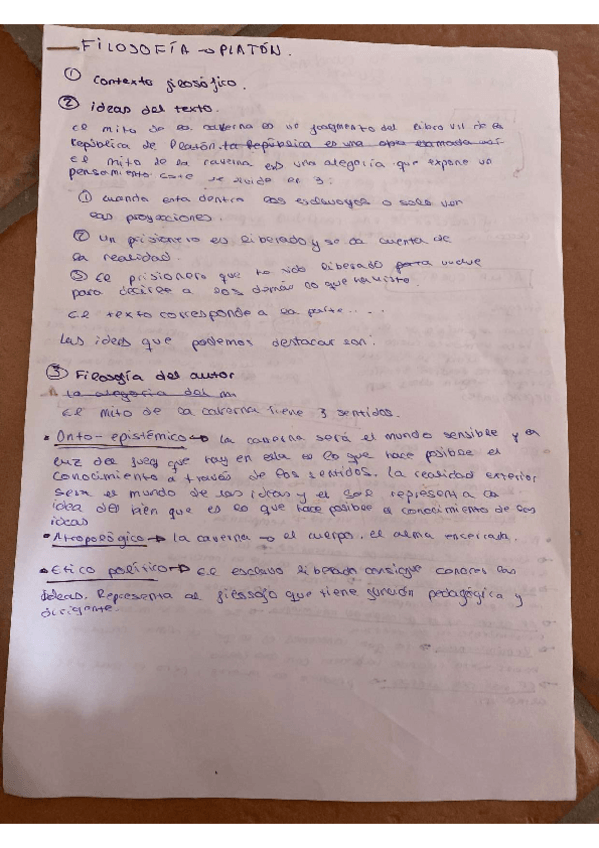 FILOSOFÍA → PLATÓN.
① Contexto filosófico.
② ideas del texto.
El mito de la caverna es un fragmento del libro VII de la
República de Platón. La República es una obra
El mito de la caverna es una alegoría que expone un
pensamiento. Este se divide en 3:
① cuando esta dentro los esclavos o solo ven
las proyecciones.
② un prisionero es liberado y se da cuenta de
la realidad.
③ El prisionero que ha sido liberado para vuelve
para decirle a los demás lo que ha visto.
El texto corresponde a la parte....
Las ideas que podemos destacar son:
③ Filosofía del autor
La alegoría del m
El mito de la caverna tiene 3 sentidos.
• Onto-epistémico → la caverna será el mundo sensible y la
luz del fuego que hay en esta es lo que hace posible el
conocimiento a través de los sentidos. La realidad exterior
sera el mundo de las ideas y el Sol representa la
idea del bien que es lo que hace posible el conocimiento de las
ideas
• Atropológico → la caverna → el cuerpo. el alma encerrada.
• Etico político → El esclavo liberado consigue conocer las
ideas. Representa al filosofo que tiene función pedagógica y
dirigente.